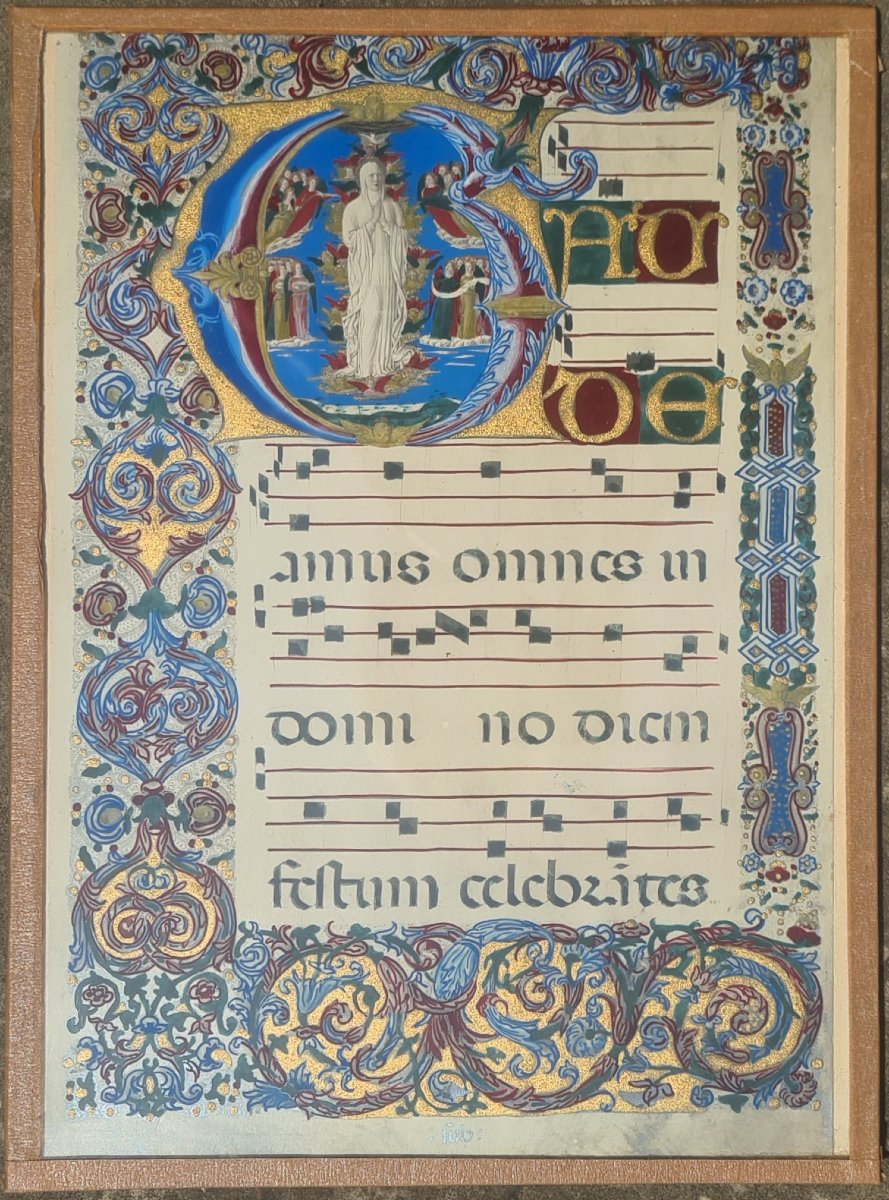 GAU
DE
amus omnes in
domi no diem
festum celebrātes